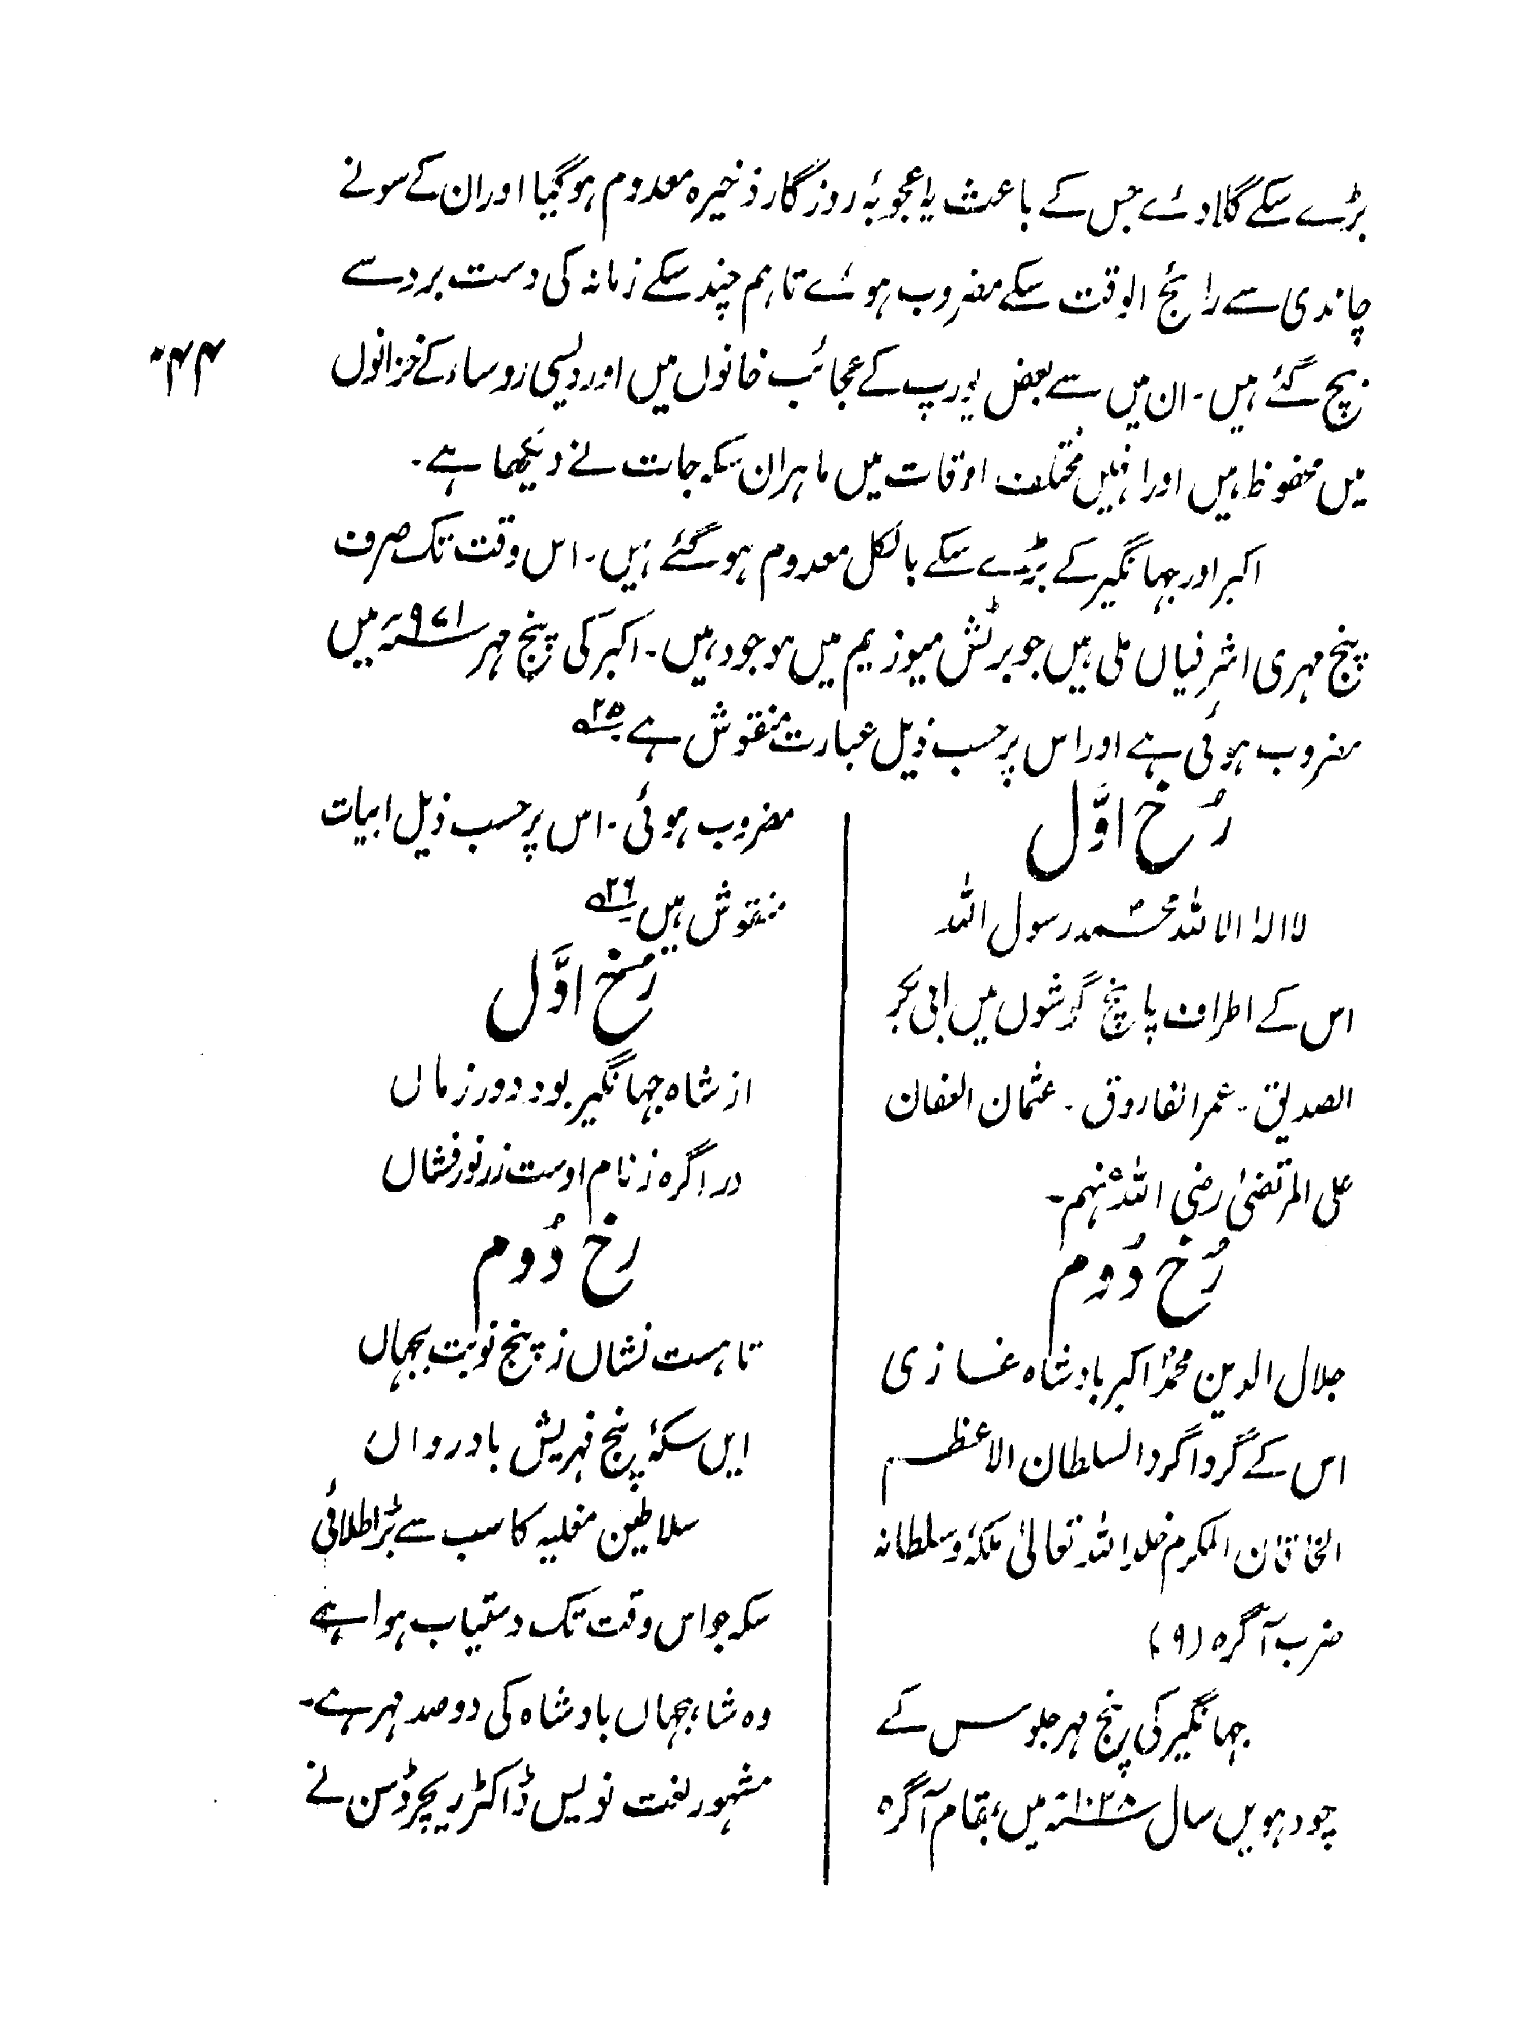 بڑے سکے گلا دئے جس کے باعث یہ اعجوبۂ روزگار ذخیرہ معدوم ہو گیا اور ان کے سونے
چاندی سے رائج الوقت سکے مضروب ہوئے تاہم چند سکے زمانہ کی دست برد سے
بچ گئے ہیں۔ ان میں سے بعض یورپ کے عجائب خانوں میں اور دیسی روساء کے خزانوں
میں محفوظ ہیں اور انہیں مختلف اوقات میں ماہران سکہ جات نے دیکھا ہے۔
اکبر اور جہانگیر کے بڑے سکے بالکل معدوم ہو گئے ہیں۔ اس وقت تک صرف
پنج مہری اشرفیاں ملی ہیں جو برٹش میوزیم میں موجود ہیں۔ اکبر کی پنج مہر ۹۷۱ھ میں
مضروب ہوئی ہے اور اس پر حسب ذیل عبارت منقوش ہے ۲۵ھ
رُخ اوّل
لا الہ الا اللہ محمد رسول اللہ
اس کے اطراف پانچ گوشوں میں ابی بکر
الصدیق۔ عمر الفاروق۔ عثمان العفان
علی المرتضیٰ رضی اللہ عنہم۔
رُخ دُوم
جلال الدین محمد اکبر بادشاہ غازی
اس کے گردا گرد السلطان الاعظم
الخاقان المکرم خلد اللہ تعالیٰ ملکہٗ و سلطانہ
ضرب آگرہ (۹)
جہانگیر کی پنج مہر جلوس کے
چودہویں سال ۱۰۲۸ھ میں بمقام آگرہ
مضروب ہوئی۔ اس پر حسب ذیل ابیات
منقوش ہیں ۲۶ھ
رُخ اوّل
از شاہ جہانگیر بود دور زماں
در اگرہ ز نام اوست زر نور فشاں
رخ دُوم
تا ہست نشاں ز پنج نوبت بجہاں
ایں سکۂ پنج مہریش باد رواں
سلاطین مغلیہ کا سب سے بڑا طلائی
سکہ جو اس وقت تک دستیاب ہوا ہے
وہ شاہجہاں بادشاہ کی دو صد مہر ہے۔
مشہور لغت نویس ڈاکٹر ریچرڈسن نے